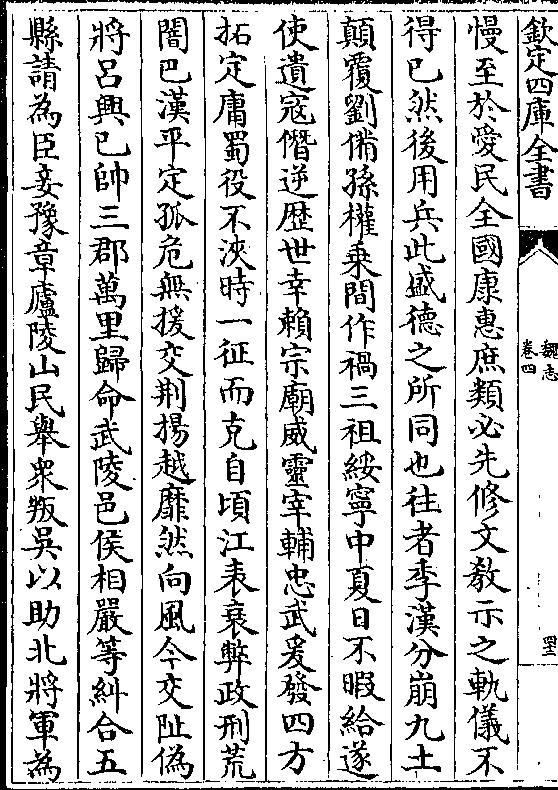 欽定四庫全書
魏志
卷四
慢至於愛民全國康惠庶類必先修文教示之軌儀不
得已然後用兵此盛德之所同也往者季漢分崩九土
顛覆劉備孫權乗間作禍三祖綏寧中夏日不暇給遂
使遺冦僭逆歴世幸賴宗廟威靈宰輔忠武爰發四方
拓定庸蜀役不浹時一征而克自頃江表衰弊政刑荒
闇巴漢平定孤危無援交荆揚越靡然向風今交阯偽
將吕興已帥三郡萬里歸命武陵邑侯相嚴等糾合五
縣請為臣妾豫章廬陵山民舉衆叛吳以助北將軍為